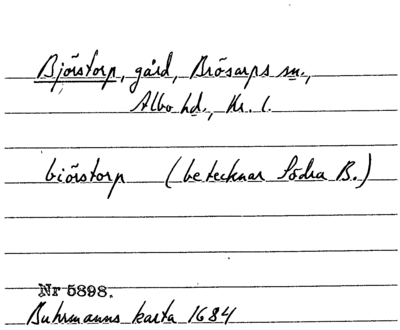 Bjõrstorp, gård, Brõsarps sn.,
Albo hd., Kr. l.
biõrstorp (betecknar Södra B.)
Nr 5898.
Buhrmanns karta 1684